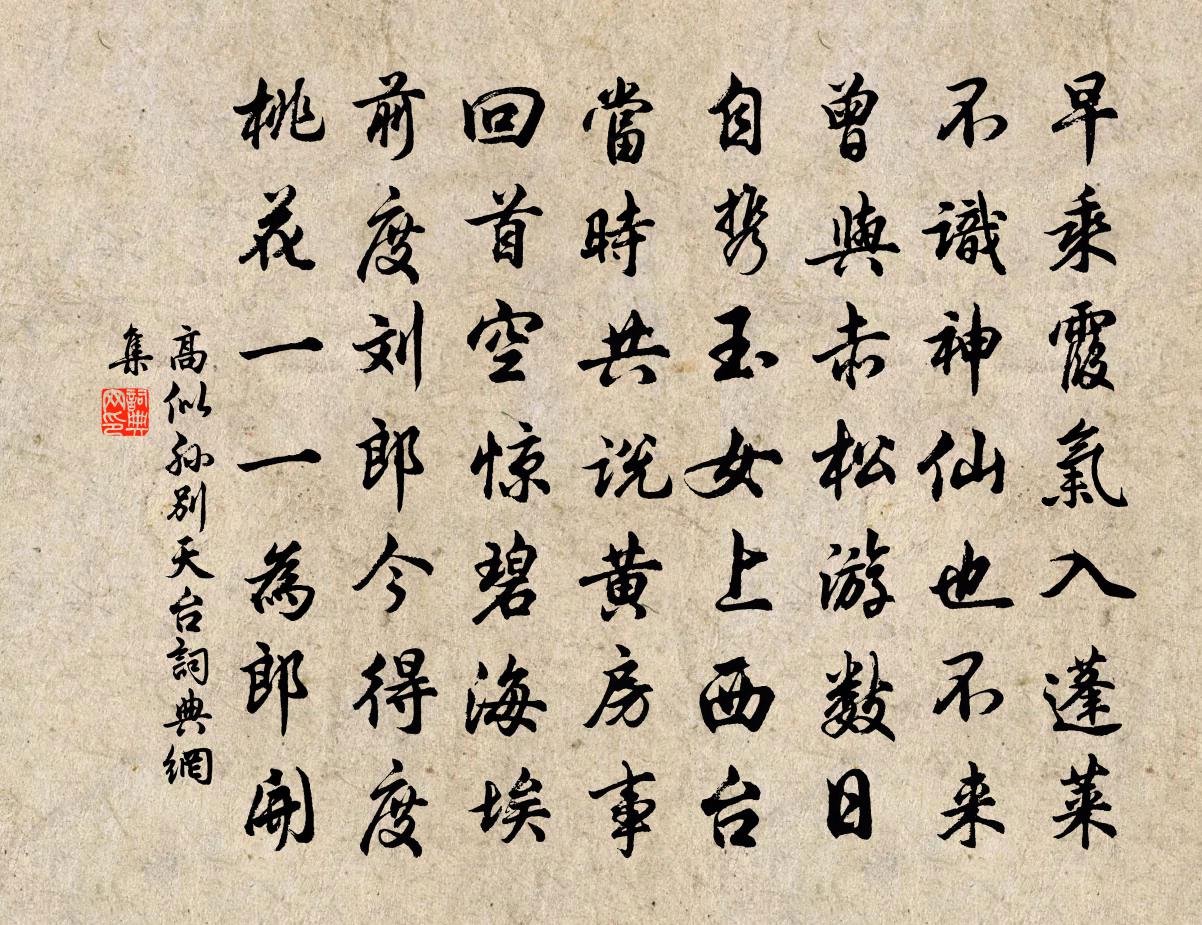 早乘霞氣入蓬萊
不識神仙也不来
曾與赤松游数日
自携玉女上西台
當時共说黄房事
回首空惊碧海埃
前度刘郎今得度
桃花一一為郎開
高似孙别天台詞典網
集
詞典网印